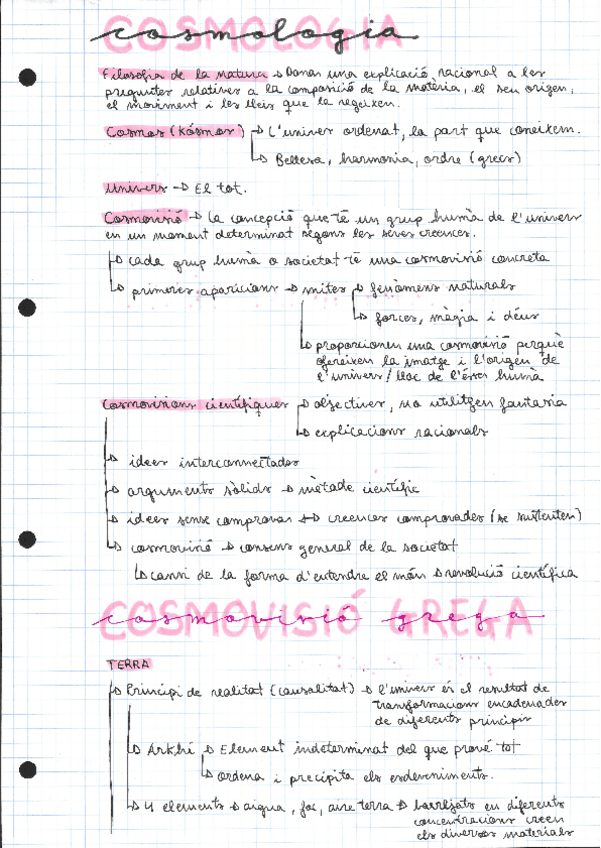 COSMOLOGIA
cosmologia
Filosofia de la natura → Donar una explicació racional a les
preguntes relatives a la composició de la matèria, el seu origen,
el moviment i les lleis que la regeixen.
Cosmos (Kósmos) → L'univers ordenat, la part que coneixem.
→ Bellesa, harmonia, ordre (grecs)
Univers → El tot.
Cosmovisió → La concepció que té un grup humà de l'univers
en un moment determinat segons les seves creences.
→ cada grup humà o societat té una cosmovisió concreta
→ primeres aparicions → mites → fenòmens naturals
→ forces, màgia i déus
→ proporcionen una cosmovisió perquè
ofereixen la imatge i l'origen de
l'univers / lloc de l'ésser humà
Cosmovisions científiques → objectives, no utilitzen fantasia
→ explicacions racionals
→ idees interconnectades
→ arguments sòlids → mètode científic
→ idees sense comprovar ↔ creences comprovades (se sustenten)
→ cosmovisió → consens general de la societat
↳ canvi de la forma d'entendre el món → revolució científica
COSMOVISIÓ GREGA
cosmovisió grega
TERRA
→ Principi de realitat (causalitat) → l'univers és el resultat de
transformacions encadenades
de diferents principis
→ Arkhé → Element indeterminat del que prové tot
↳ ordena i precipita els esdeveniments.
→ 4 elements → aigua, foc, aire terra → barrejats en diferents
concentracions creen
els diversos materials